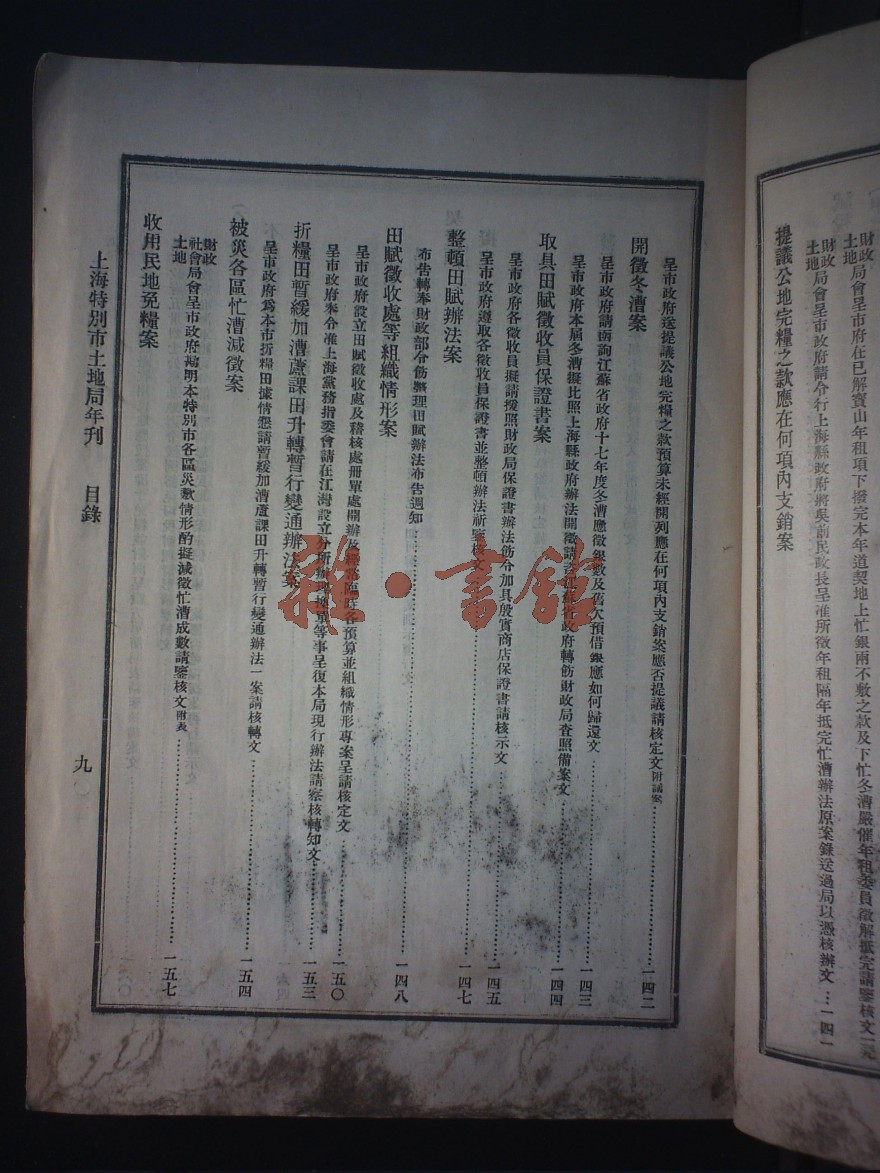 財政
土地局會呈市府在已解寶山年租項下撥完本年道契地上忙銀兩不敷之款及下忙冬漕嚴催年租委員徵解抵完請鑒核文
財政
土地局會呈市政府請令行上海縣政府將吳前民政長呈准所徵年租隔年抵完忙漕辦法原案錄送過局以憑核辦文…一四一
提議公地完糧之款應在何項內支銷案
呈市政府送提議公地完糧之款預算未經開列應在何項內支銷案應否提議請核定文附議案…一四二
開徵冬漕案
呈市政府請函詢江蘇省政府十七年度冬漕應徵銀數及舊欠預借銀應如何歸還文…一四三
呈市政府本屆冬漕擬比照上海縣政府辦法開徵請咨江蘇省政府轉飭財政局查照備案文…一四四
取具田賦徵收員保證書案
呈市政府各徵收員擬請援照財政局保證書辦法飭令加具殷實商店保證書請核示文…一四五
呈市政府遵取各徵收員保證書並整頓辦法祈鑒核文…一四七
整頓田賦辦法案
布告轉奉財政部令飭整理田賦辦法布告週知…一四八
田賦徵收處等組織情形案
呈市政府設立田賦徵收處及稽核處冊單處開辦及經常臨時各預算並組織情形專案呈請核定文…一五〇
呈市政府奉令准上海黨務指委會請在江灣設立分所辦理換單等事呈復本局現行辦法請察核轉知文…一五三
折糧田暫緩加漕蘆課田升轉暫行變通辦法案
呈市政府為本市折糧田據情懇請暫緩加漕蘆課田升轉暫行變通辦法一案請核轉文…一五四
被災各區忙漕減徵案
財政
社會局會呈市政府瀝明本特別市各區災歉情形酌擬減徵忙漕成數請鑒核文附表…一五七
土地
收用民地免糧案
上海特別市土地局年刊 目錄
九
雜·書館